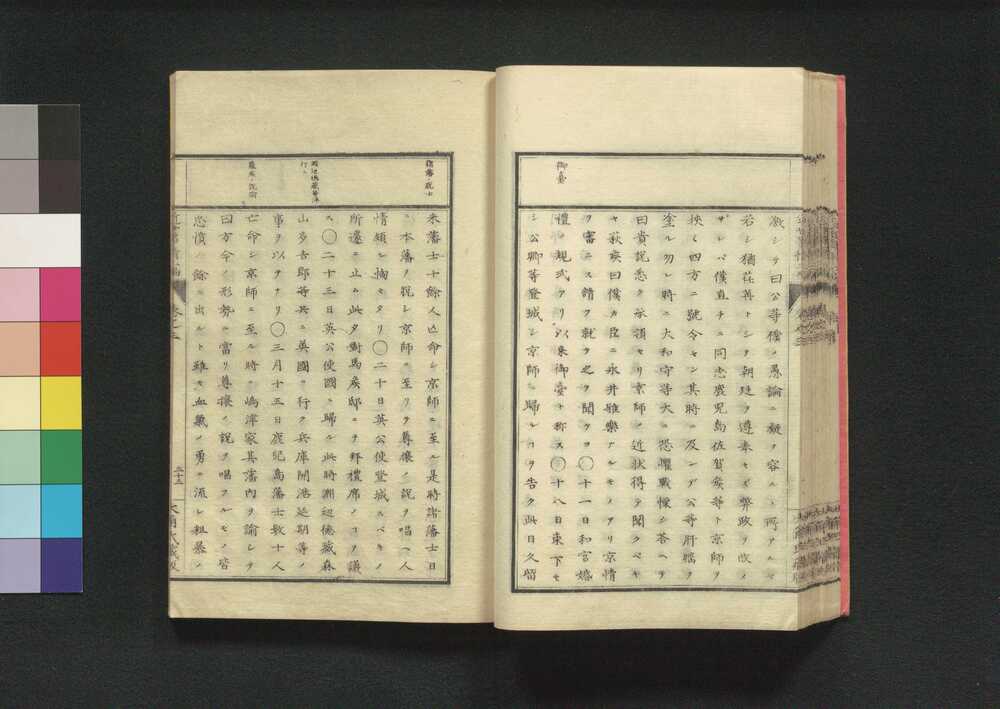 御臺
激シテ曰公等猶ホ愚論ニ檄ヲ容ルヽ所アルヤ
若シ猶荏苒トシテ朝廷ヲ遵奉セズ弊政ヲ改メ
ザレバ僕直チニ同志鹿児島佐賀矦等ト京師ヲ
挾ミ四方ニ號令セン其時ニ及ンデ公等肝膓ヲ
塗ル勿レ時ニ大和守等大ニ恐懼戰慄シ荅ヘテ
曰貴説悉ク承領セリ京師ノ近状得テ聞クベキ
ヤ萩矦曰僕カ臣ニ永井雅樂アルモノアリ京情
ヲ審ニス請フ就テ之ヲ聞ケヨ〇十一日和宮婚
禮ノ規式アリ以來御臺ト称ス〇十八日東下セ
シ公卿等登城シ京師ニ歸レコヲ告ク此日久留
諸藩ノ脱士
米藩士十餘人亡命シ京師ニ至ル是時諸藩士日
ニ本藩ヲ脱シ京師ニ至リテ尊攘ノ説ヲ唱ヘ人
情頗ル恟々タリ〇二十日英公使登城スベキノ
所遽ニ止ム此夕對馬矦邸ニテ拜禮席ノコヲ議
ス〇二十三日英公使國ニ歸ル此時淵邉徳藏森
山多吉郎等共ニ英國ニ行ク兵庫開港延期等ノ
事ヲ以テナリ〇三月十五日鹿児島藩士數十人
亡命シ京師ニ至ル時ニ嶋津家其藩内ヲ諭シテ
曰方今ノ形勢ニ當リ尊攘ノ説ヲ唱フルモノ皆
忠憤ノ餘ニ出ルト雖モ血氣ノ勇ニ流レ粗暴ノ
三十五